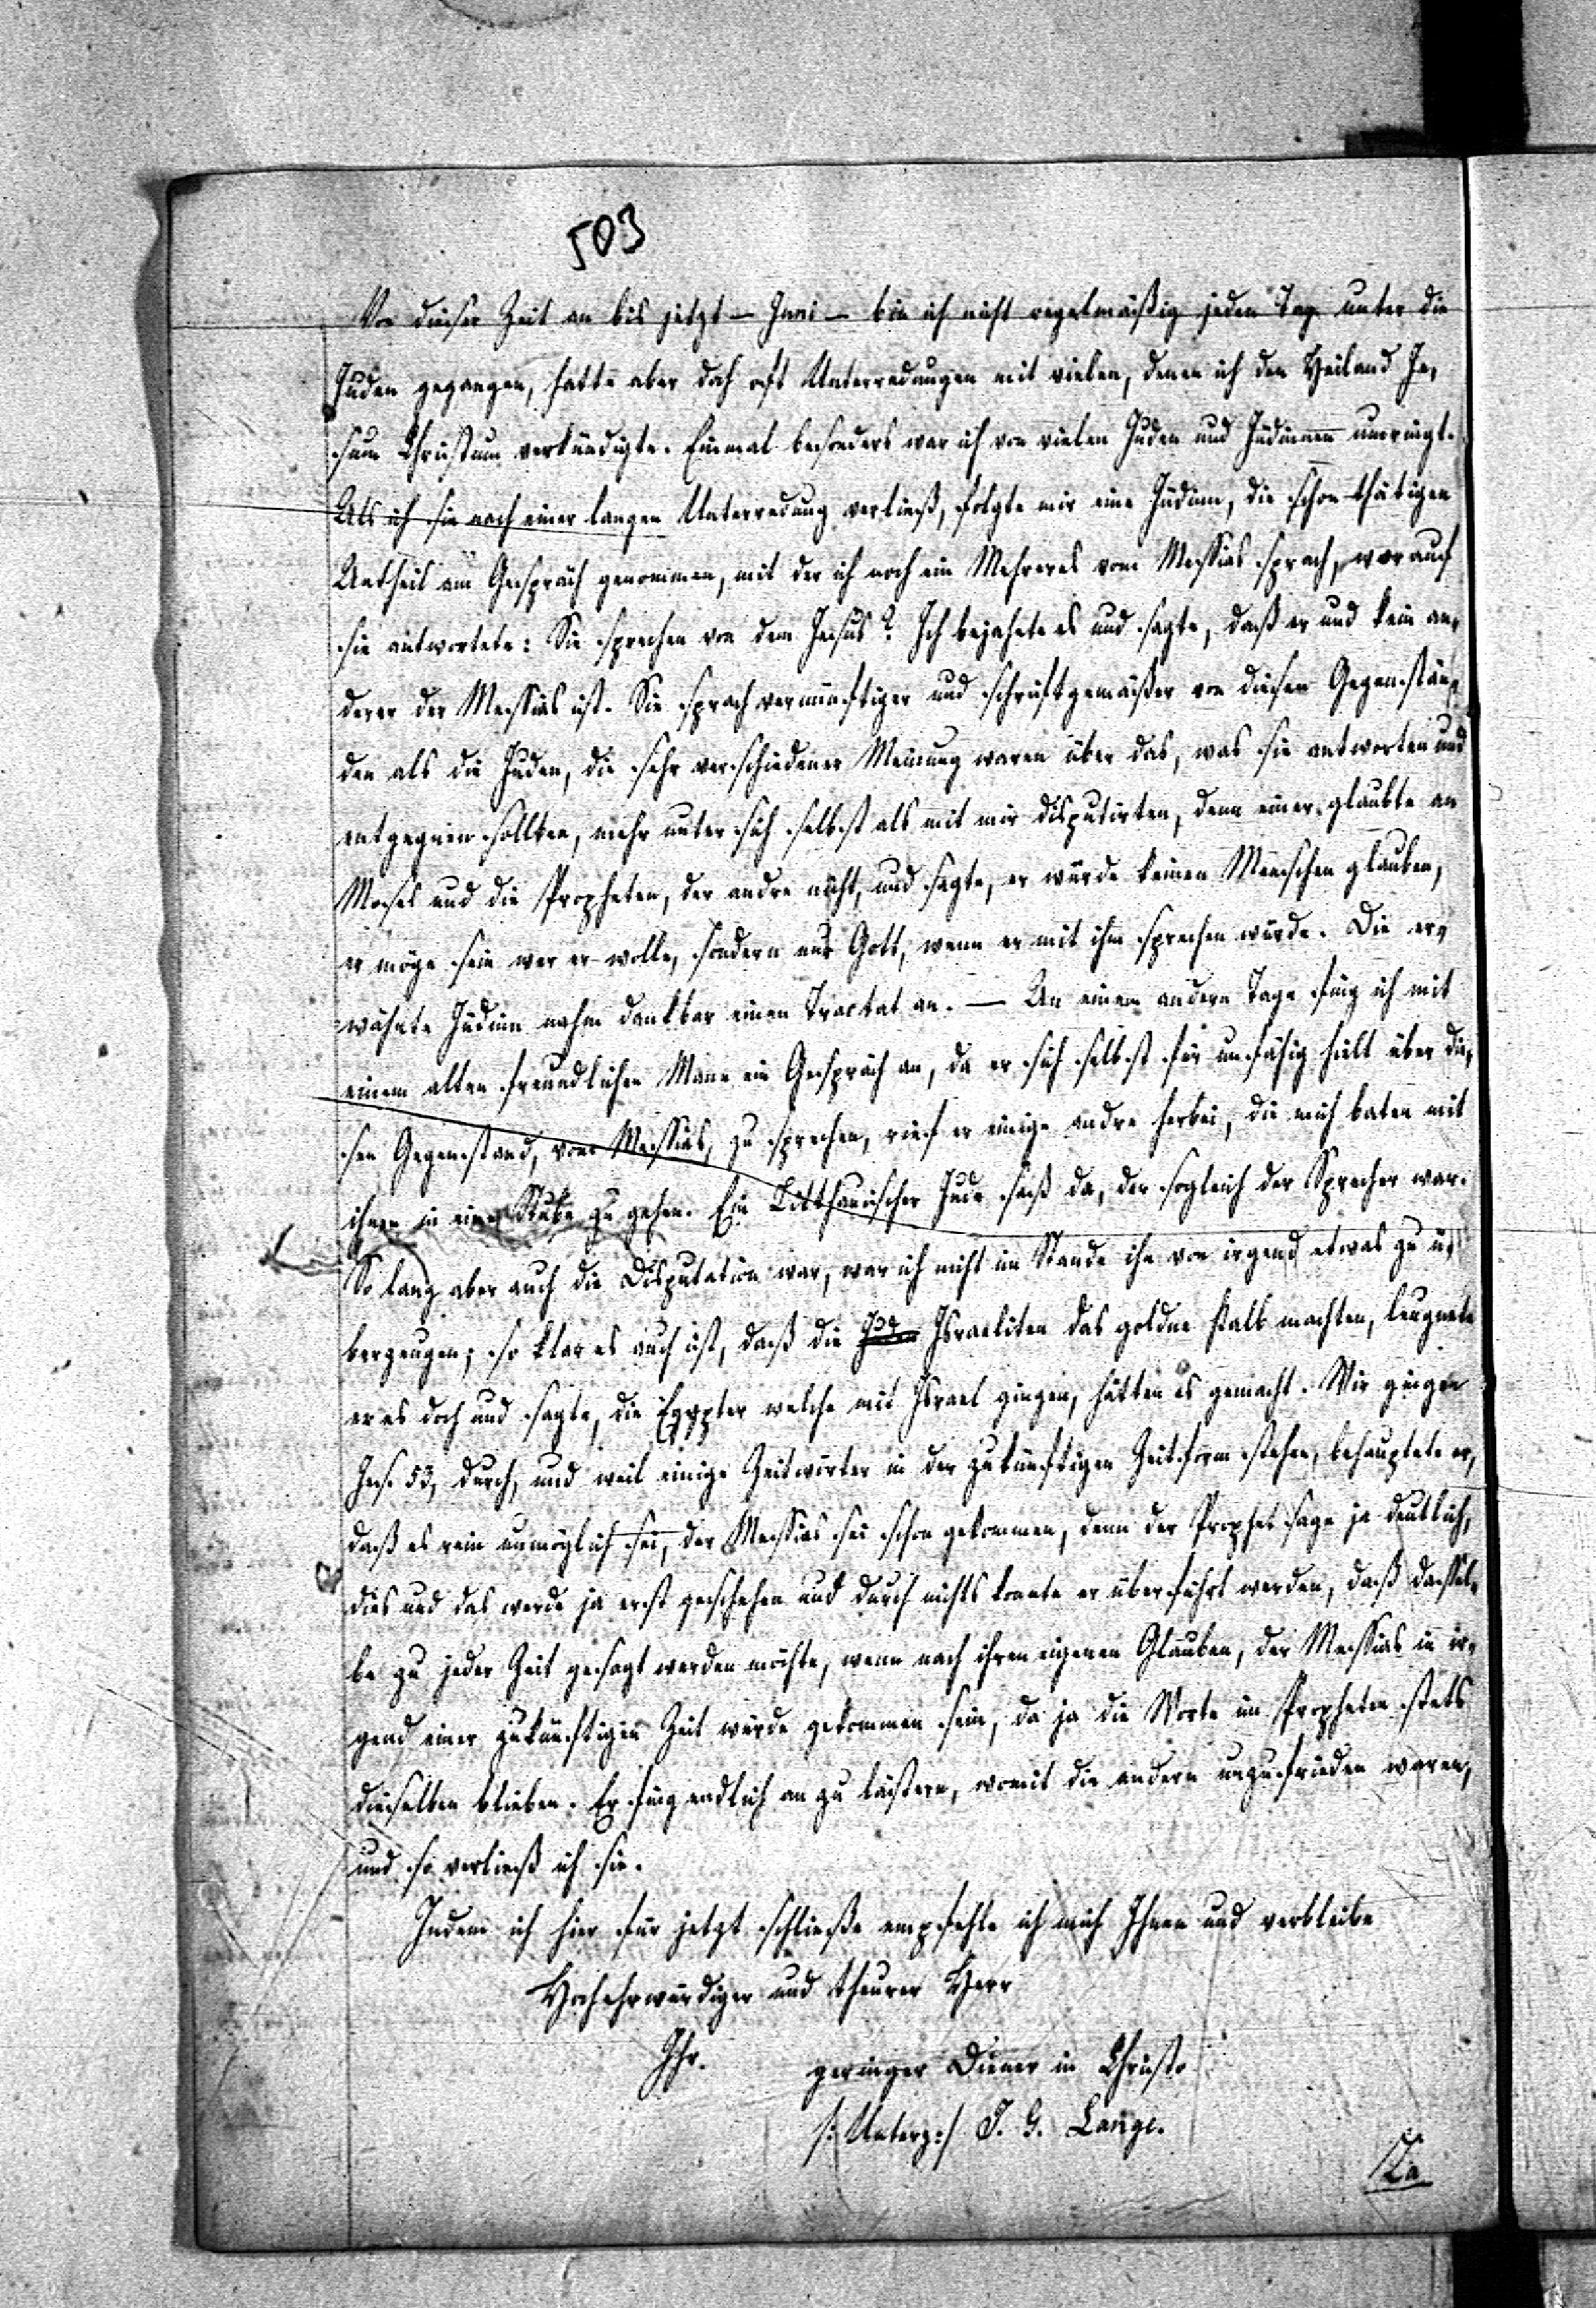 503
Von dieser Zeit an bis jetzt – Juni – bin ich nicht regelmäßig jeden Tag unter die
Juden gegangen, hatte aber doch oft Unterredungen mit vielen, denen ich den Heiland Je-
sum Christum verkündigte. Einmal besonders war ich von vielen Juden und Jüdinnen umringt.
Als ich sie nach einer langen Unterredung verließ, folgte mir eine Jüdinn, die schon thätigen
Antheil am Gespräch genommen, mit der ich noch ein Mehreres vom Messias sprach, worauf
sie antwortete: Sie sprechen von dem Jesus? Ich bejahete es und sagte, daß er und kein an-
derer der Messias ist. Sie sprach vernünftiger und schriftgemäßer von diesen Gegenstän-
den als die Juden, die sehr verschiedener Meinung waren über das, was sie antworten und
entgegnen sollten, mehr unter sich selbst als mit mir disputirten, denn einer glaubte an
Moses und die Propheten, der andre nicht, und sagte, er würde keinen Menschen glauben,
er möge sein wer er wolle, sondern nur Gott, wenn er mit ihm sprechen würde. Die er-
wähnte Jüdinn nahm dankbar einen Tractat an. — An einem andern Tage fing ich mit
einem alten freundlichen Mann ein Gespräch an, da er sich selbst für unfähig hielt über die-
sen Gegenstand, vom Messias, zu sprechen, rief er einige andre herbei, die mich baten mit
ihnen in eine Stube zu gehen. Ein Litthauischer Jude saß da, der sogleich der Sprecher war.
So lang aber auch die Disputation war, war ich nicht im Stande ihn von irgend etwas zu ü-
berzeugen; so klar es auch ist, daß die Juden Israeliten das goldne Kalb machten, leugnete
er es doch und sagte, die Egypter welche mit Israel gingen, hätten es gemacht. Wir gingen
Jes. 53, durch, und weil einige Zeitwörter in der zukünftigen Zeitform stehen, behauptete er,
daß es rein unmöglich sei, der Messias sei schon gekommen, denn der Prophet sage ja deutlich,
dies und das werde ja erst geschehen und durch nichts konnte er überführt werden, daß dassel-
be zu jeder Zeit gesagt werden möchte, wenn nach ihrem eigenen Glauben, der Messias in ir-
gend einer zukünftigen Zeit würde gekommen sein, da ja die Worte im Propheten stets
dieselben blieben. Er fing endlich an zu lästern, womit die andern unzufrieden waren,
und so verließ ich sie.
Indem ich hier für jetzt schließe empfehle ich mich Ihnen und verbleibe
Hochehrwürdiger und theurer Herr
Ihr. geringer Diener in Christo
/: Unterz :/ J. G. Lange.